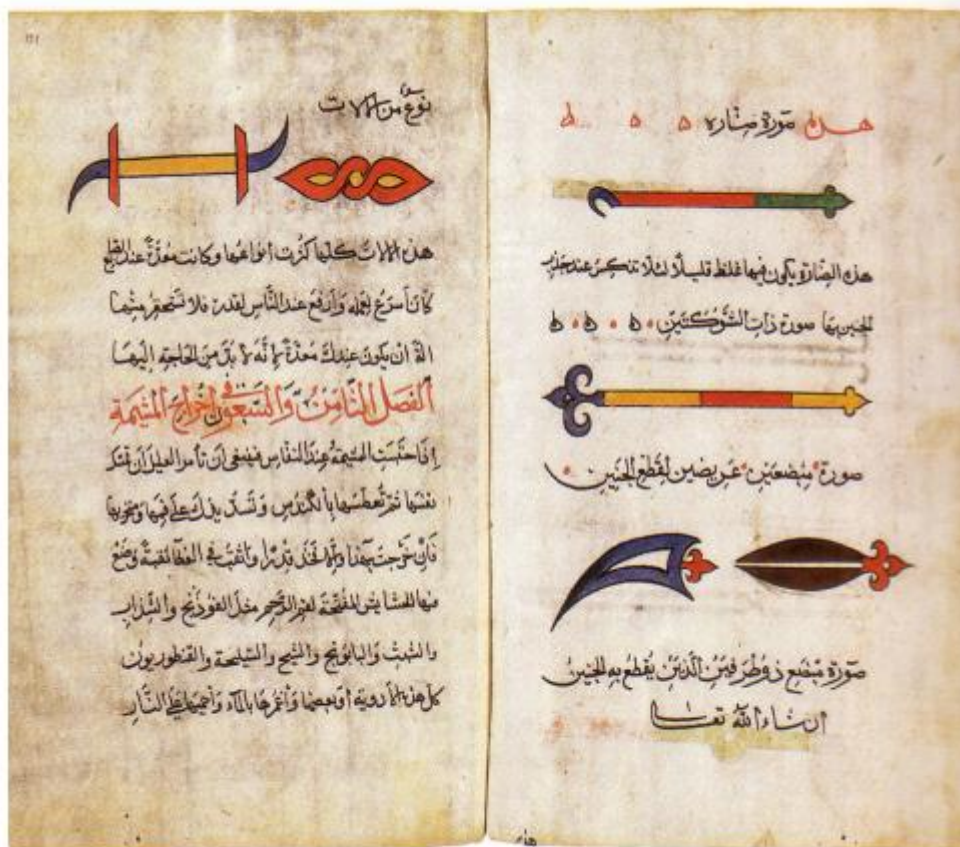 هذه صورة صنارة
هذه الصنارة يكون فيها غلظ قليلا لئلا تنكسر عند جذب
الجنين بها صورة ذات الشوكتين
صورة مبضعين عريضين لقطع الجنين
صورة مبضع ذو طرفين الذين يقطع به الجنين
ان شاء الله تعا
نوع من الالات
هذه الالات كلها كثرت أنواعها وكانت معدة عند الصانع
كان أسرع لعمله وأرفع عند الناس لقدره فلا تستحقر منها
الة ان يكون عندك معدة لإنه لا بد من الحاجة إليها
الفصل الثامن والسبعون في اخراج المشيمة
إذا احتبست المشيمة عند النفاس فينبغي أن تأمر العليل أن تمسك
نفسها ثم تعطسها بالكندس وتسد يدك على فمها ومنخريها
فإن خرجت بهذا وإلا فخذ قدرا واثقب في الغطا ثقبة وضع
فيها الحشايش المفتحة لفم الرحم مثل الفوذنج والسذاب
والشبث والبابونج والشيح والسليخة والقنطوريون
كل هذه الأدوية أو بعضها وأغمرها بالماء وأحميها على النار